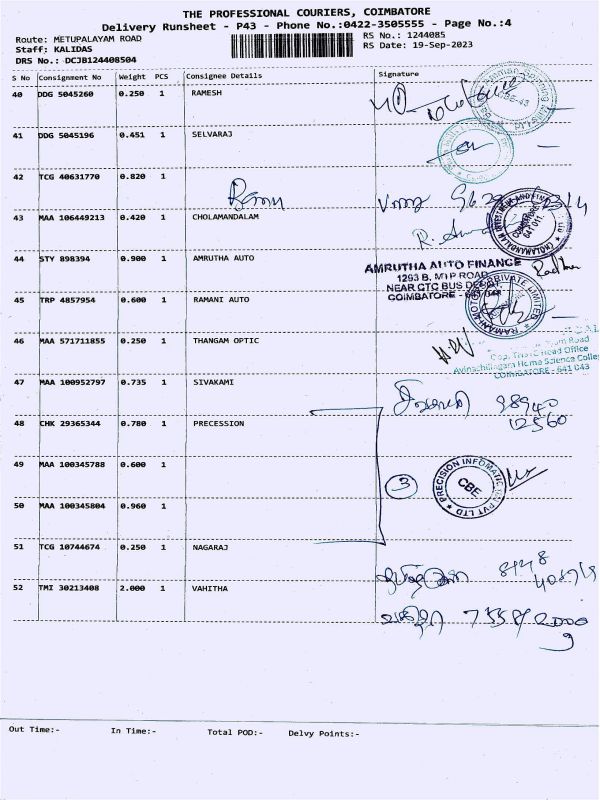 THE PROFESSIONAL COURIERS, COIMBATORE
Delivery Runsheet - P43 - Phone No.:0422-3505555 - Page No.:4
Route: METUPALAYAM ROAD
Staff: KALIDAS
DRS No.: DCJB124408504
RS No.: 1244085
RS Date: 19-Sep-2023
S No Consignment No Weight PCS Consignee Details Signature
40 DDG 5045260 0.250 1 RAMESH
41 DDG 5045196 0.451 1 SELVARAJ
42 TCG 40631770 0.820 1
Ramu
43 MAA 106449213 0.420 1 CHOLAMANDALAM
44 STY 898394 0.900 1 AMRUTHA AUTO
AMRUTHA AUTO FINANCE
1293 B, MTP ROAD
NEAR CTC BUS DEPOT,
COIMBATORE -
45 TRP 4857954 0.600 1 RAMANI AUTO
46 MAA 571711855 0.250 1 THANGAM OPTIC
Road
Head Office
Avinashilingam Home Science College
COIMBATORE - 641 043
47 MAA 100952797 0.735 1 SIVAKAMI
98940
12560
48 CHK 29365344 0.780 1 PRECESSION
49 MAA 100345788 0.600 1
3
PRECISION INFOMATIC PVT LTD
CBE
50 MAA 100345804 0.960 1
51 TCG 10744674 0.250 1 NAGARAJ
8148
52 TMI 30213408 2.000 1 VAHITHA
Out Time:- In Time:- Total POD:- Delvy Points:-